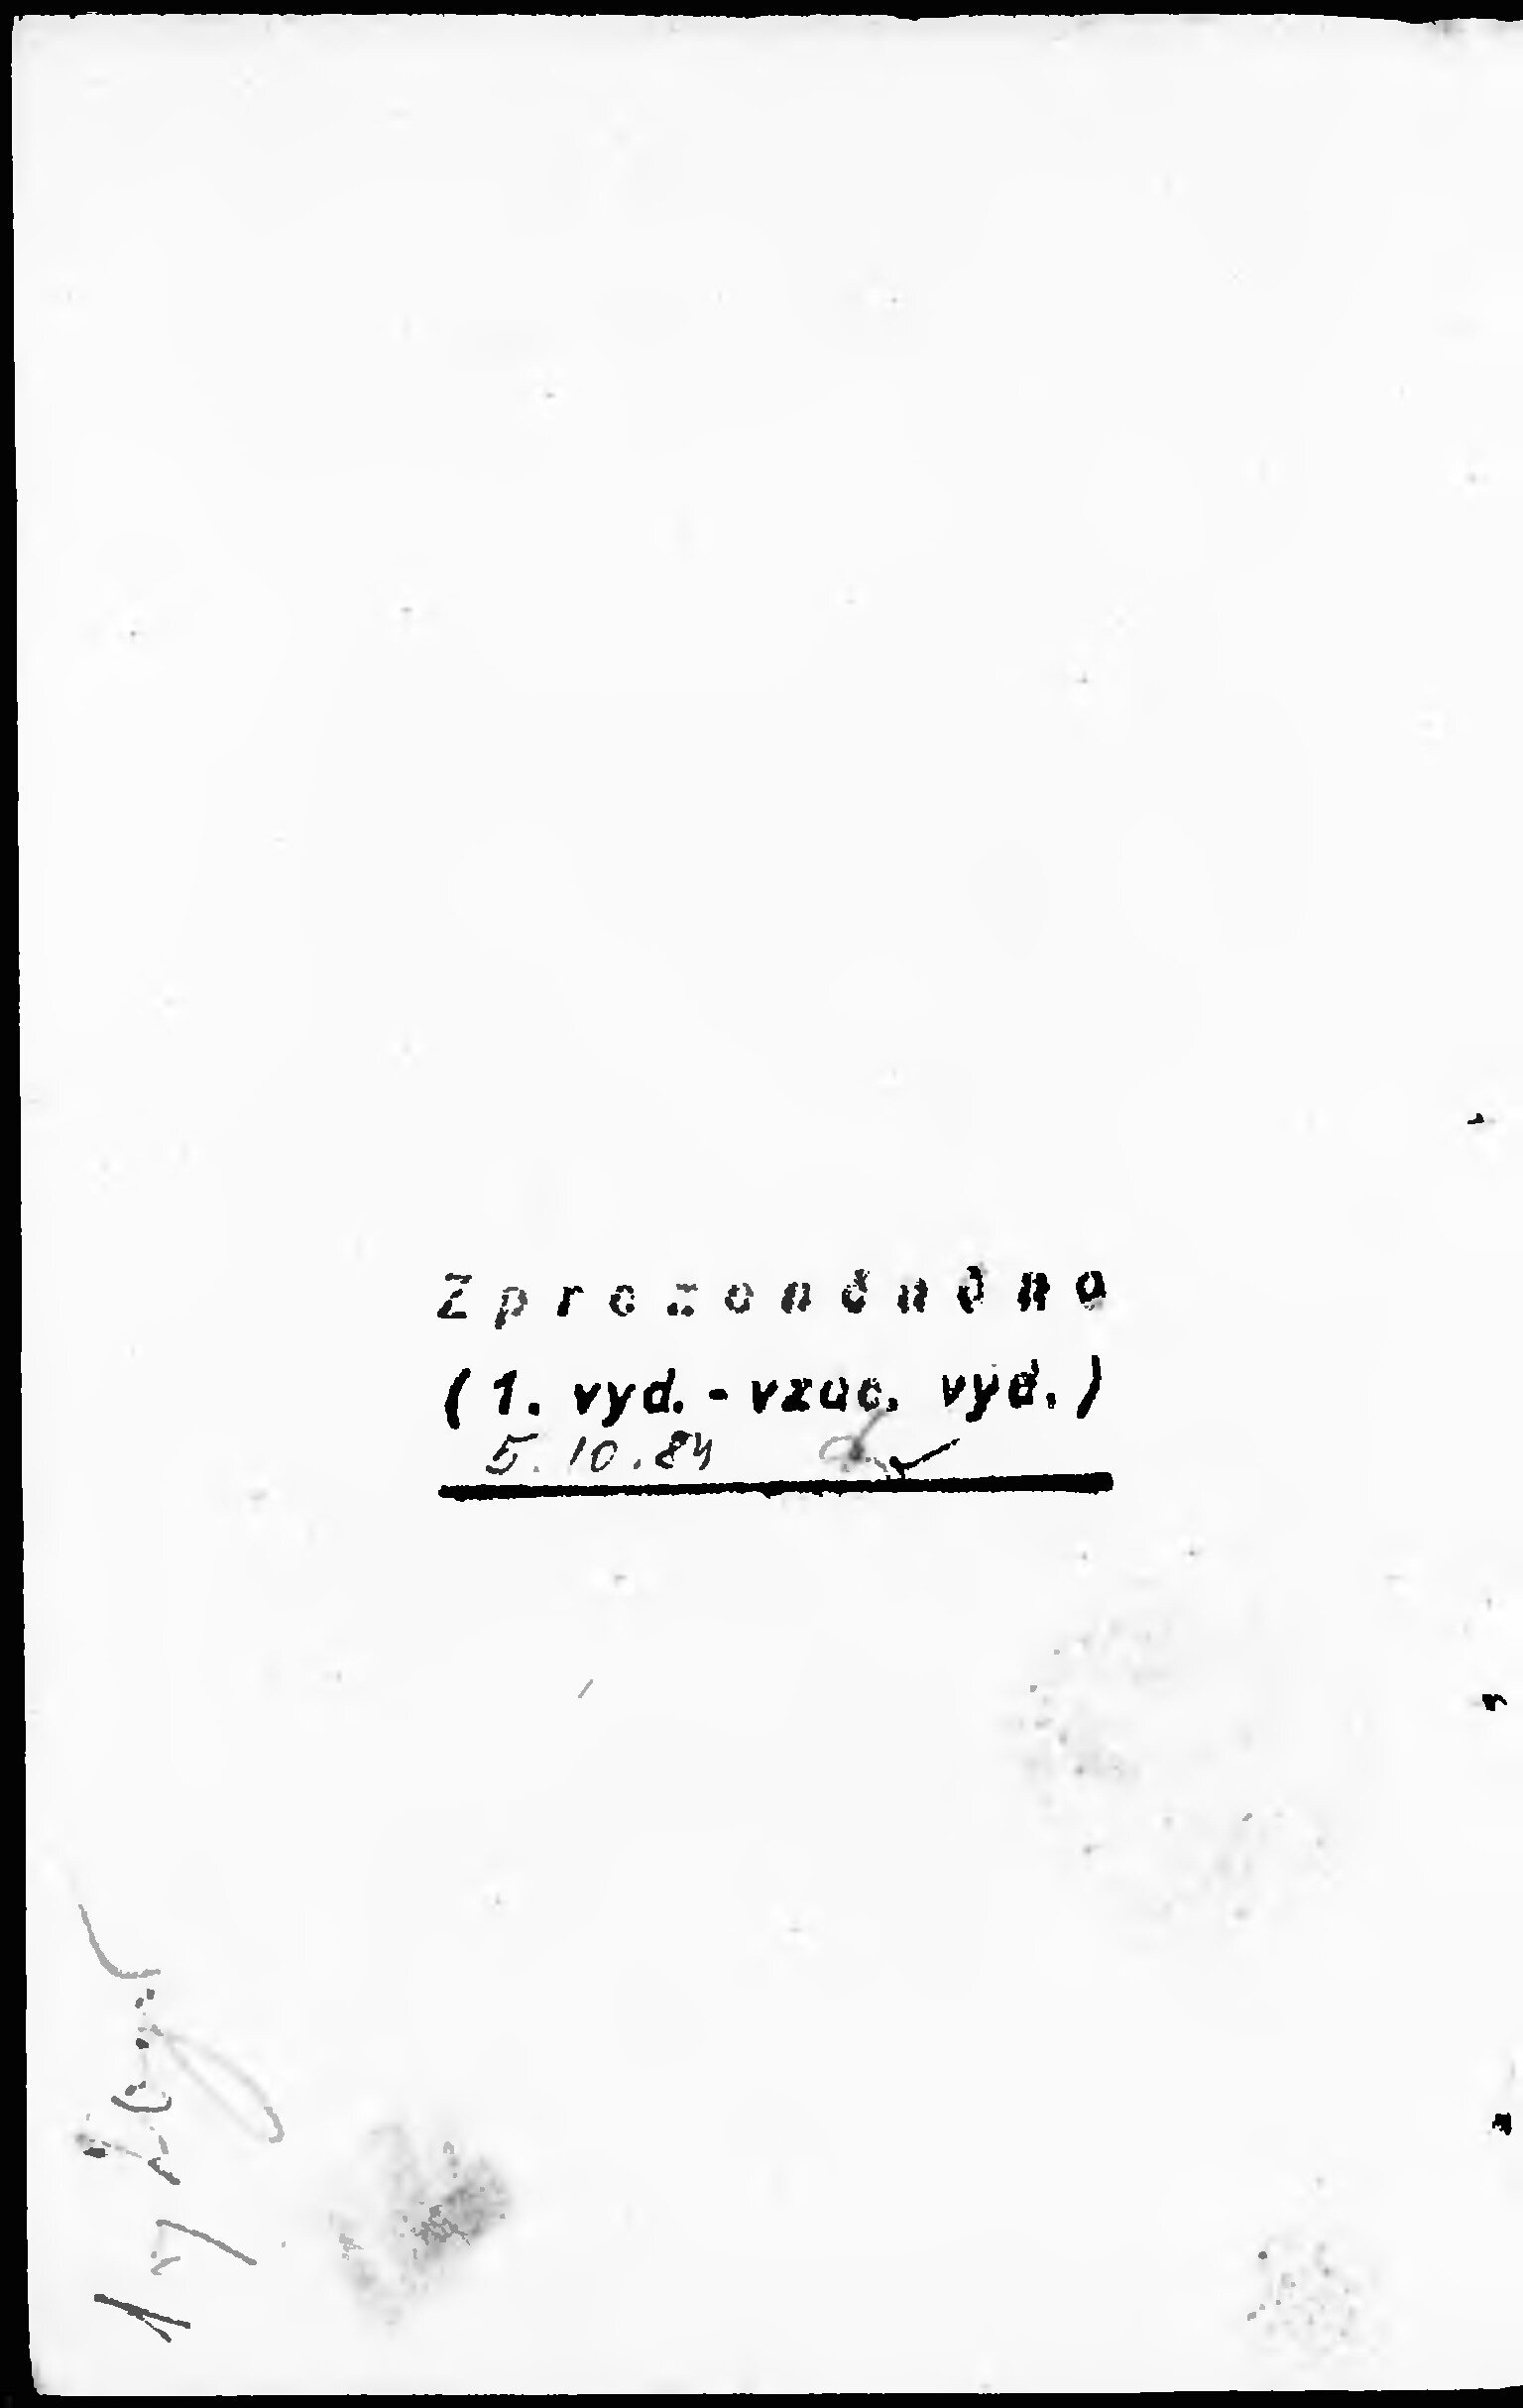 Zprezenčněno
(1. vyd. - vzác. vyd.)
5. 10. 84